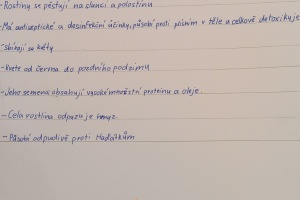 -Rostliny se pěstují na slunci a polostínu
-Má antiseptické a desinfekční účinky, působí proti plísním v těle a celkově detoxikuje
-Sbírají se květy
-Kvete od června do pozdního podzimu
-Jeho semena obsahují vysoké množství proteinu a oleje
-Celá rostlina odpuzuje hmyz
-Působí odpudivě proti Háďátkům